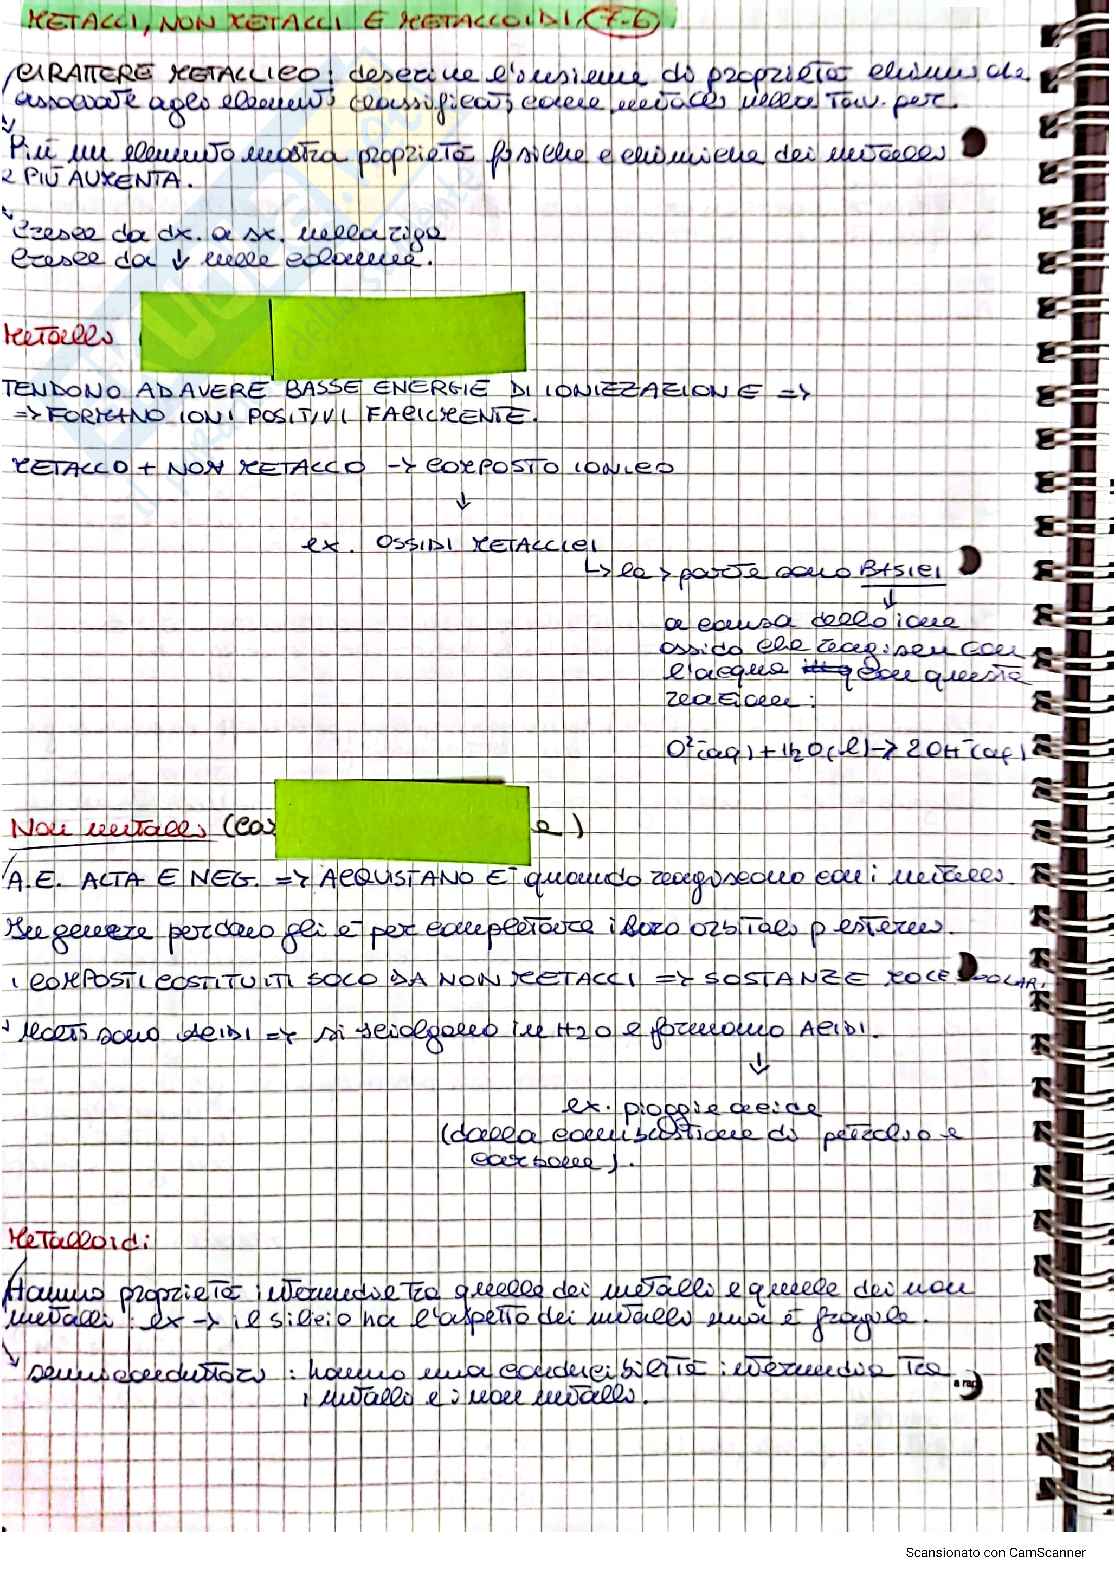 METALLI, NON METALLI E METALLOIDI. (7.6)
CARATTERE METALLICO: descrive l'insieme di proprietà chimiche
associate agli elementi classificati come metalli nella Tav. per.
Più un elemento mostra proprietà fisiche e chimiche dei metalli
e PIÙ AUMENTA.
Cresce da dx. a sx. nella riga
Cresce da ↓ nelle colonne.
Metalli
TENDONO AD AVERE BASSE ENERGIE DI IONIZZAZIONE =>
=> FORMANO IONI POSITIVI FACILMENTE.
METALLO + NON METALLO -> COMPOSTO IONICO
↓
ex. OSSIDI METALLICI
↳ la > parte sono BASICI
↓
a causa dello ione
ossido che reagisce con
l'acqua con questa
reazione:
O²⁻(aq) + H₂O(l) -> 2OH⁻(aq)
Non metalli (
e)
A.E. ALTA E NEG. => ACQUISTANO E⁻ quando reagiscono con i metalli
In genere perdono gli e⁻ per completare i loro orbitali p esterni.
I COMPOSTI COSTITUITI SOLO DA NON METALLI => SOSTANZE MOLE OLARI
Molti sono ACIDI => si sciolgono in H2O e formano ACIDI.
↓
ex. piogge acide
(dalla combustione di petrolio e
carbone).
Metalloidi:
Hanno proprietà intermedie tra quelle dei metalli e quelle dei non
metalli: ex -> il silicio ha l'aspetto dei metalli ma è fragile.
semiconduttori: hanno una conducibilità intermedia tra
i metalli e i non metalli.
Scansionato con CamScanner